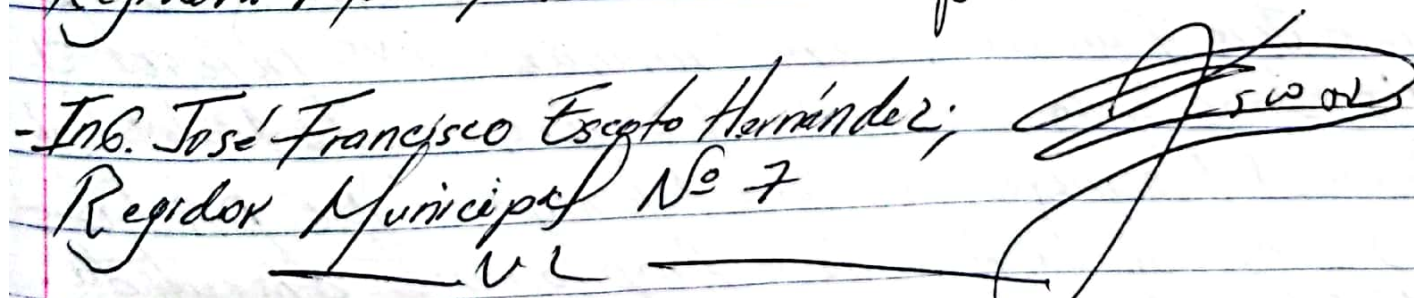 - Ing. José Francisco Escoto Hernández;
Regidor Municipal Nº 7